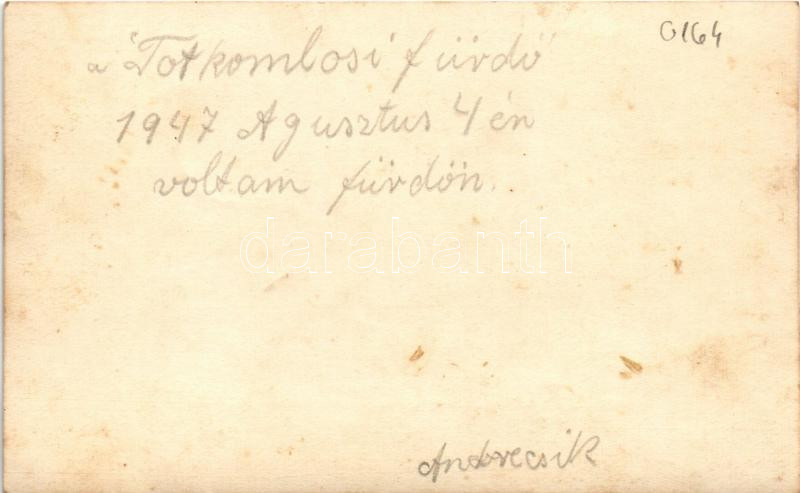 0164
a "Totkomlosi fürdő
1947 Agusztus 4 én
voltam fürdőn.
darabanth
Andrecsik